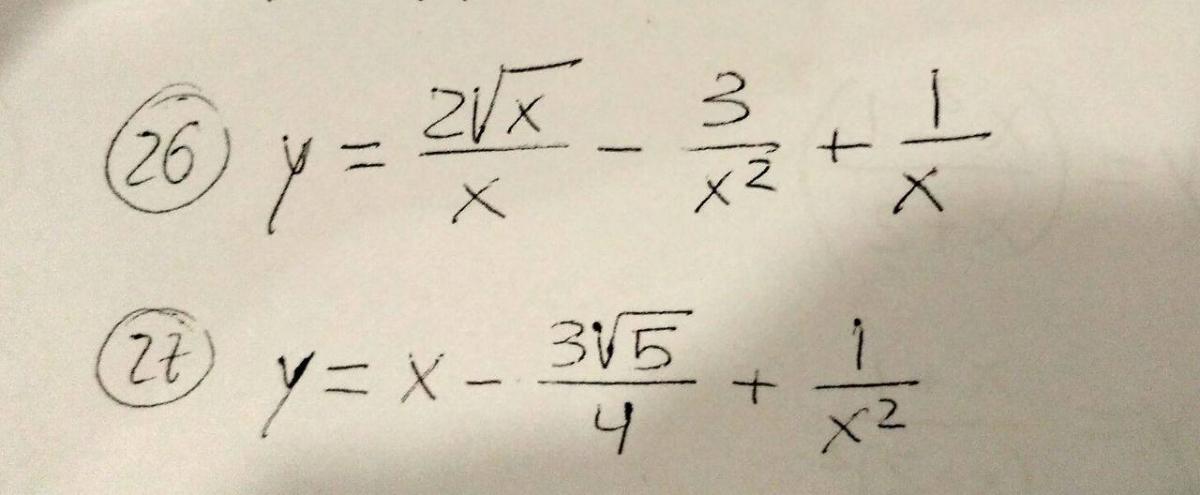 26 y = 2√x / x - 3 / x² + 1 / x
27 y = x - 3√5 / 4 + 1 / x²